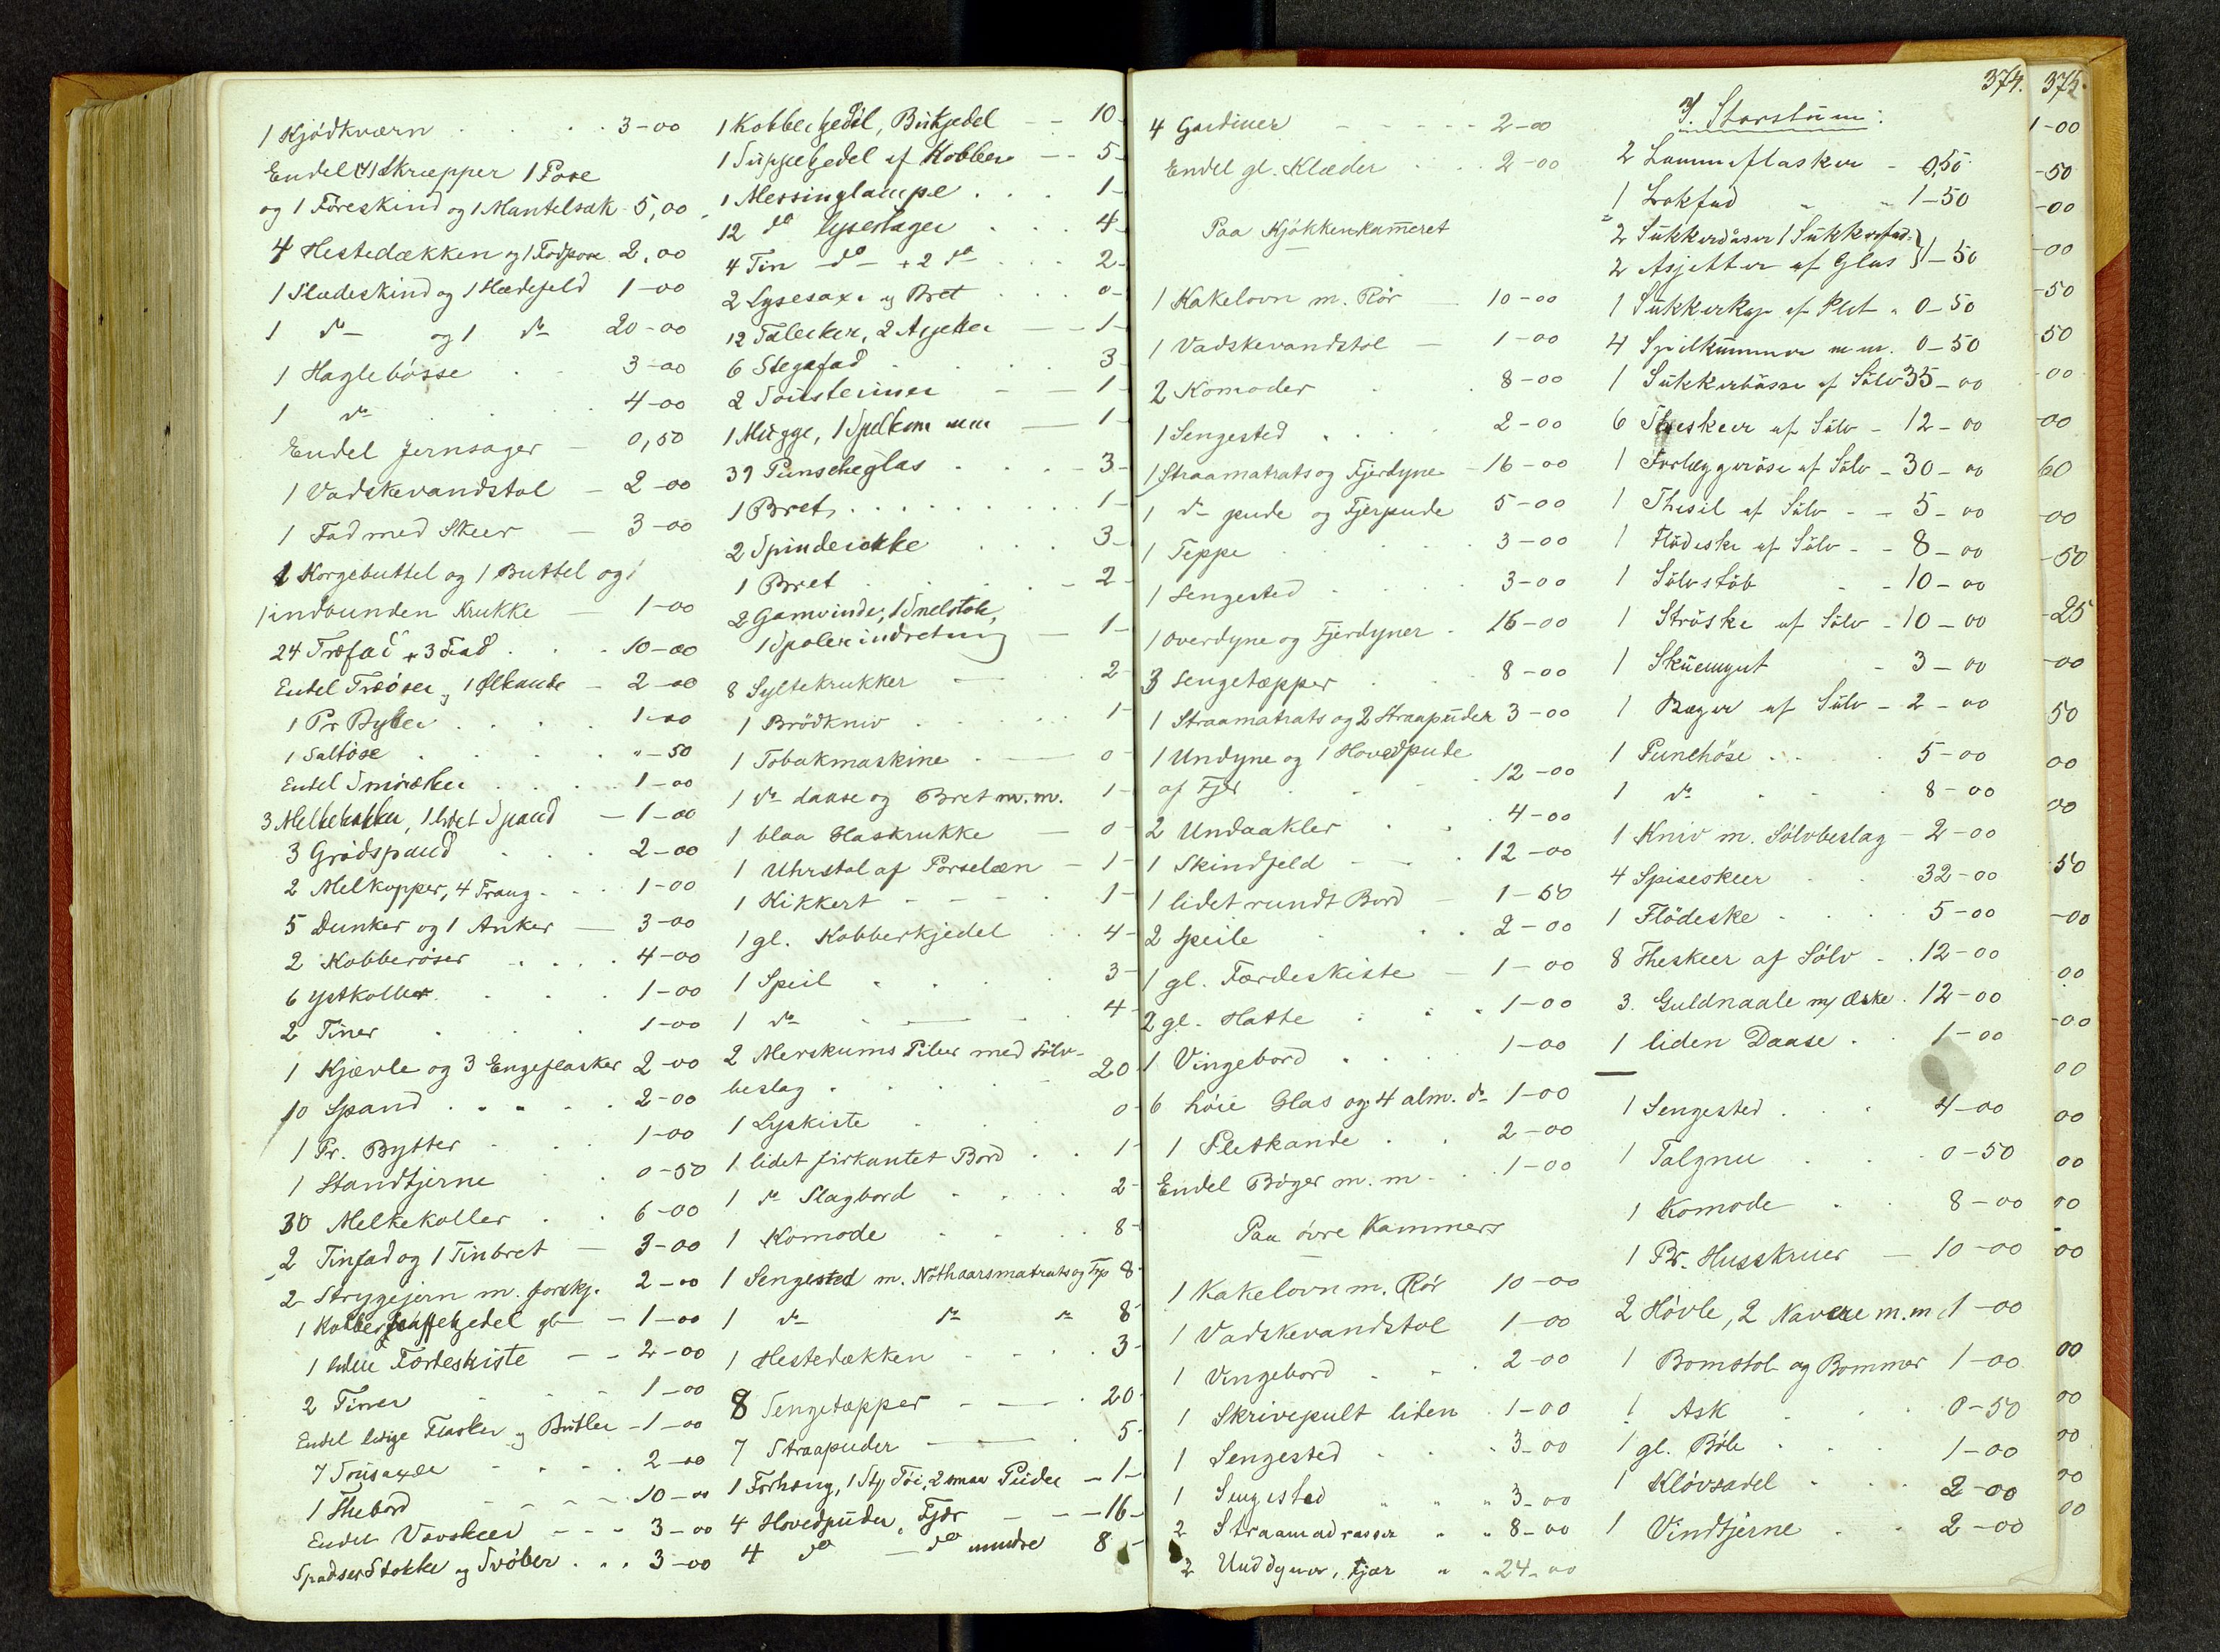 1 Kjödkværn . . . . 3-00
Endel (4) Skræpper 1 Pose
og 1 Föreskind og 1 Mantelsæk 5,00
4 Hestedækken og 1 Fodpose 2,00
1 Slædeskind og 1 1-00
1 do og 1 do 20-00
1 Haglebösse . . 3-00
1 do . . . . 4-00
Endel Jernsager - 0,50
1 Vadskevandstol - 2-00
1 Fad med Skeer - 3-00
1 Korgebuttel og 1 Buttel og
1 indbunden Krukke - 1-00
24 Træfad + 3 Fad . . . 10-00
Endel Træöser og 1 Ölkande - 2-00
1 Pr Bytter . . . . 1-00
1 Saltöse . . . . "-50
Endel . . . . 1-00
3 Melkekokker, 1 lidet Spand - 1-00
3 Grödspand . . . 2-00
2 Melkopper, 4 Traug . . . 1-00
5 Dunker og 1 Anker - 3-00
2 Kobberöser . . . . 4-00
6 Ystkoller . . . . 1-00
2 Tiner . . . . 1-00
1 Kjævle og 3 Engeflasker 2-00
10 Spand . . . . . 2-00
1 Pr. Bytter . . . 1-00
1 Standtjerne . . 0-50
30 Melkekoller . . 6-00
2 Tinfad og 1 Tinbret - 3-00
2 Strygejern m. forskj. 2-00
1 Kobberkaffekjedel gl - 1-00
1 liden Færdeskiste - - 2-00
2 Tiner - - - 1-00
Endel ledige Flasker og Butler - 1-00
7 . . . . 2-00
1 Thebord - - - - 10-00
Endel Vævskeer - - - 3-00
SpadserStokke og Svöber . . . 3-00
1 Kobberkjedel, Bukjedel - - 10-
1 Suppekjedel af Kobber - - 5-
1 Messinglampe . . . 1-
12 do lysestager . . . 4-
4 Tin - do - + 2 do . . . 2-
2 Lysesaxe og Bret . . . 0-
12 Talerker, 2 Asjetter - - 1-
6 Stegefad . . . . 3
2 - - 1-
1 Mugge, 1 Spelkom mm - 1-
39 Punscheglas . . . - 3-
1 Bret . . . . . . . . . 1-
2 Spinderokke . . . 3-
1 Bret . . . . - 2-
2 Garnvinder, 1 Snelstok,
1 Spolerindretning - 1-
8 Syltekrukker - - . 2-
1 Brödkniv . . . . . 1-
1 Tobakmaskine . - 0-
1 do daase og Bret m.m. 1-
1 blaa Haskrukke - 0-
1 Uhrstol af Porselæn - 1-
1 Kikkert - - - . 1-
1 gl. Kobberkjedel . . 4-
1 Speil . . . . 3-
1 do . - - . 4-
2 Merskums Piber med Sölv-
beslag . . . . - 20
1 Lyskiste . . . 0-
1 lidet firkantet Bord . . 1-
1 do Slagbord . . . . 2-
1 Komode . . . . 8-
1 Sengested m. Nöthaarsmatrats og Tæp 8-
1 do do do 8-
1 Hestedækken - . . . 3-
8 Sengetæpper - - . 20
7 Straapuder - - . 5-
1 Forhæng, 1 Töi, 2 smaa Puder - 1-
4 Hovedpuder, Fjær - - - 16-
4 do - do mindre 8-
4 Gardiner - - - - - 2-00
Endel gl. Klæder . . . 2-00
Paa Kjökkenkammeret
1 Kakelovn m. Rör - 10-00
1 Vadskevandstol - 1-00
2 Komoder . . 8-00
1 Sengested . . . . 2-00
1 Straamatrats og Fjerdyne - 16-00
1 do pude og Fjerpude 5-00
1 Teppe . . . . . 3-00
1 Sengested . . . . 3-00
1 Overdyne og Fjerdyner . 16-00
3 Sengetæpper . . . 8-00
1 Straamatrats og 2 Straapuder 3-00
1 Undyne og 1 Hovedpude
af Fjer . . . . 12-00
2 Undaakler . . . 4-00
1 Skindfeld - - . 12-00
1 lidet rundt Bord - 1-50
2 Speile . . . 2-00
1 gl. Færdeskiste - 1-00
2 gl. Hatte . . . 1-00
1 Vingebord . . . 1-00
6 höie Glas og 4 alm. do 1-00
1 Pletkande . . 2-00
Endel Böger m.m. . . 1-00
Paa övre Kammers
1 Kakelovn m. Rör 10-00
1 Vadskevandstol 1-00
1 Vingebord . . . 2-00
1 Skrivepult liden . 1-00
1 Sengested . . . 3-00
1 Sengested " " " 3-00
2 Straamadrasser " " 8-00
2 Unddyner, Fjær " " 24-00
374.
3/. Storstuen:
2 Lommeflasker - 0,50
1 Lokfad " " 1-50
2 Sukkerdåser 1 Sukkerfad
2 Asjetter af Glas } 1-50
1 Sukkerkop af Plet . 0-50
4 Spilkummer m m. 0-50
1 Sukkerbösse af Sölv 35-00
6 Theskeer af Sölv - 12-00
1 Forlæggeröse af Sölv - 30-00
1 Thesil af Sölv - - 5-00
1 Flödeske af Sölv - - 8-00
1 Sölvstöb - - 10-00
1 Ströske af Sölv - 10-00
1 Skuemynt - 3-00
1 Bæger af Sölv - 2-00
1 Punchöse . . . 5-00
1 do . . . 8-00
1 Kniv m. Sölvbeslag - 2-00
4 Spiseskeer . . 32-00
1 Flödeske . . . . 5-00
8 Theskeer af Sölv - . 12-00
3. Guldnaale m/ Æske . 12-00
1 liden Daase . . 1-00
1 Sengested . . . 4-00
1 Talgnu . . . 0-50
1 Komode . . 8-00
1 Pr. Husskruer - 10-00
2 Hövle, 2 Navere m.m. 1-00
1 Bomstol og Bommer 1-00
1 Ask . . . 0-50
1 gl. Böle . . . 1-00
1 Klövsadel . . . 2-00
1 Vindtjerne . . 2-00
375.
1-00
-50
-00
-00
-50
50
-00
-00
60
-00
-50
-25
-00
50
00
00
50
-00
00
-00
00
00
00
00
00
00
00
00
00
00